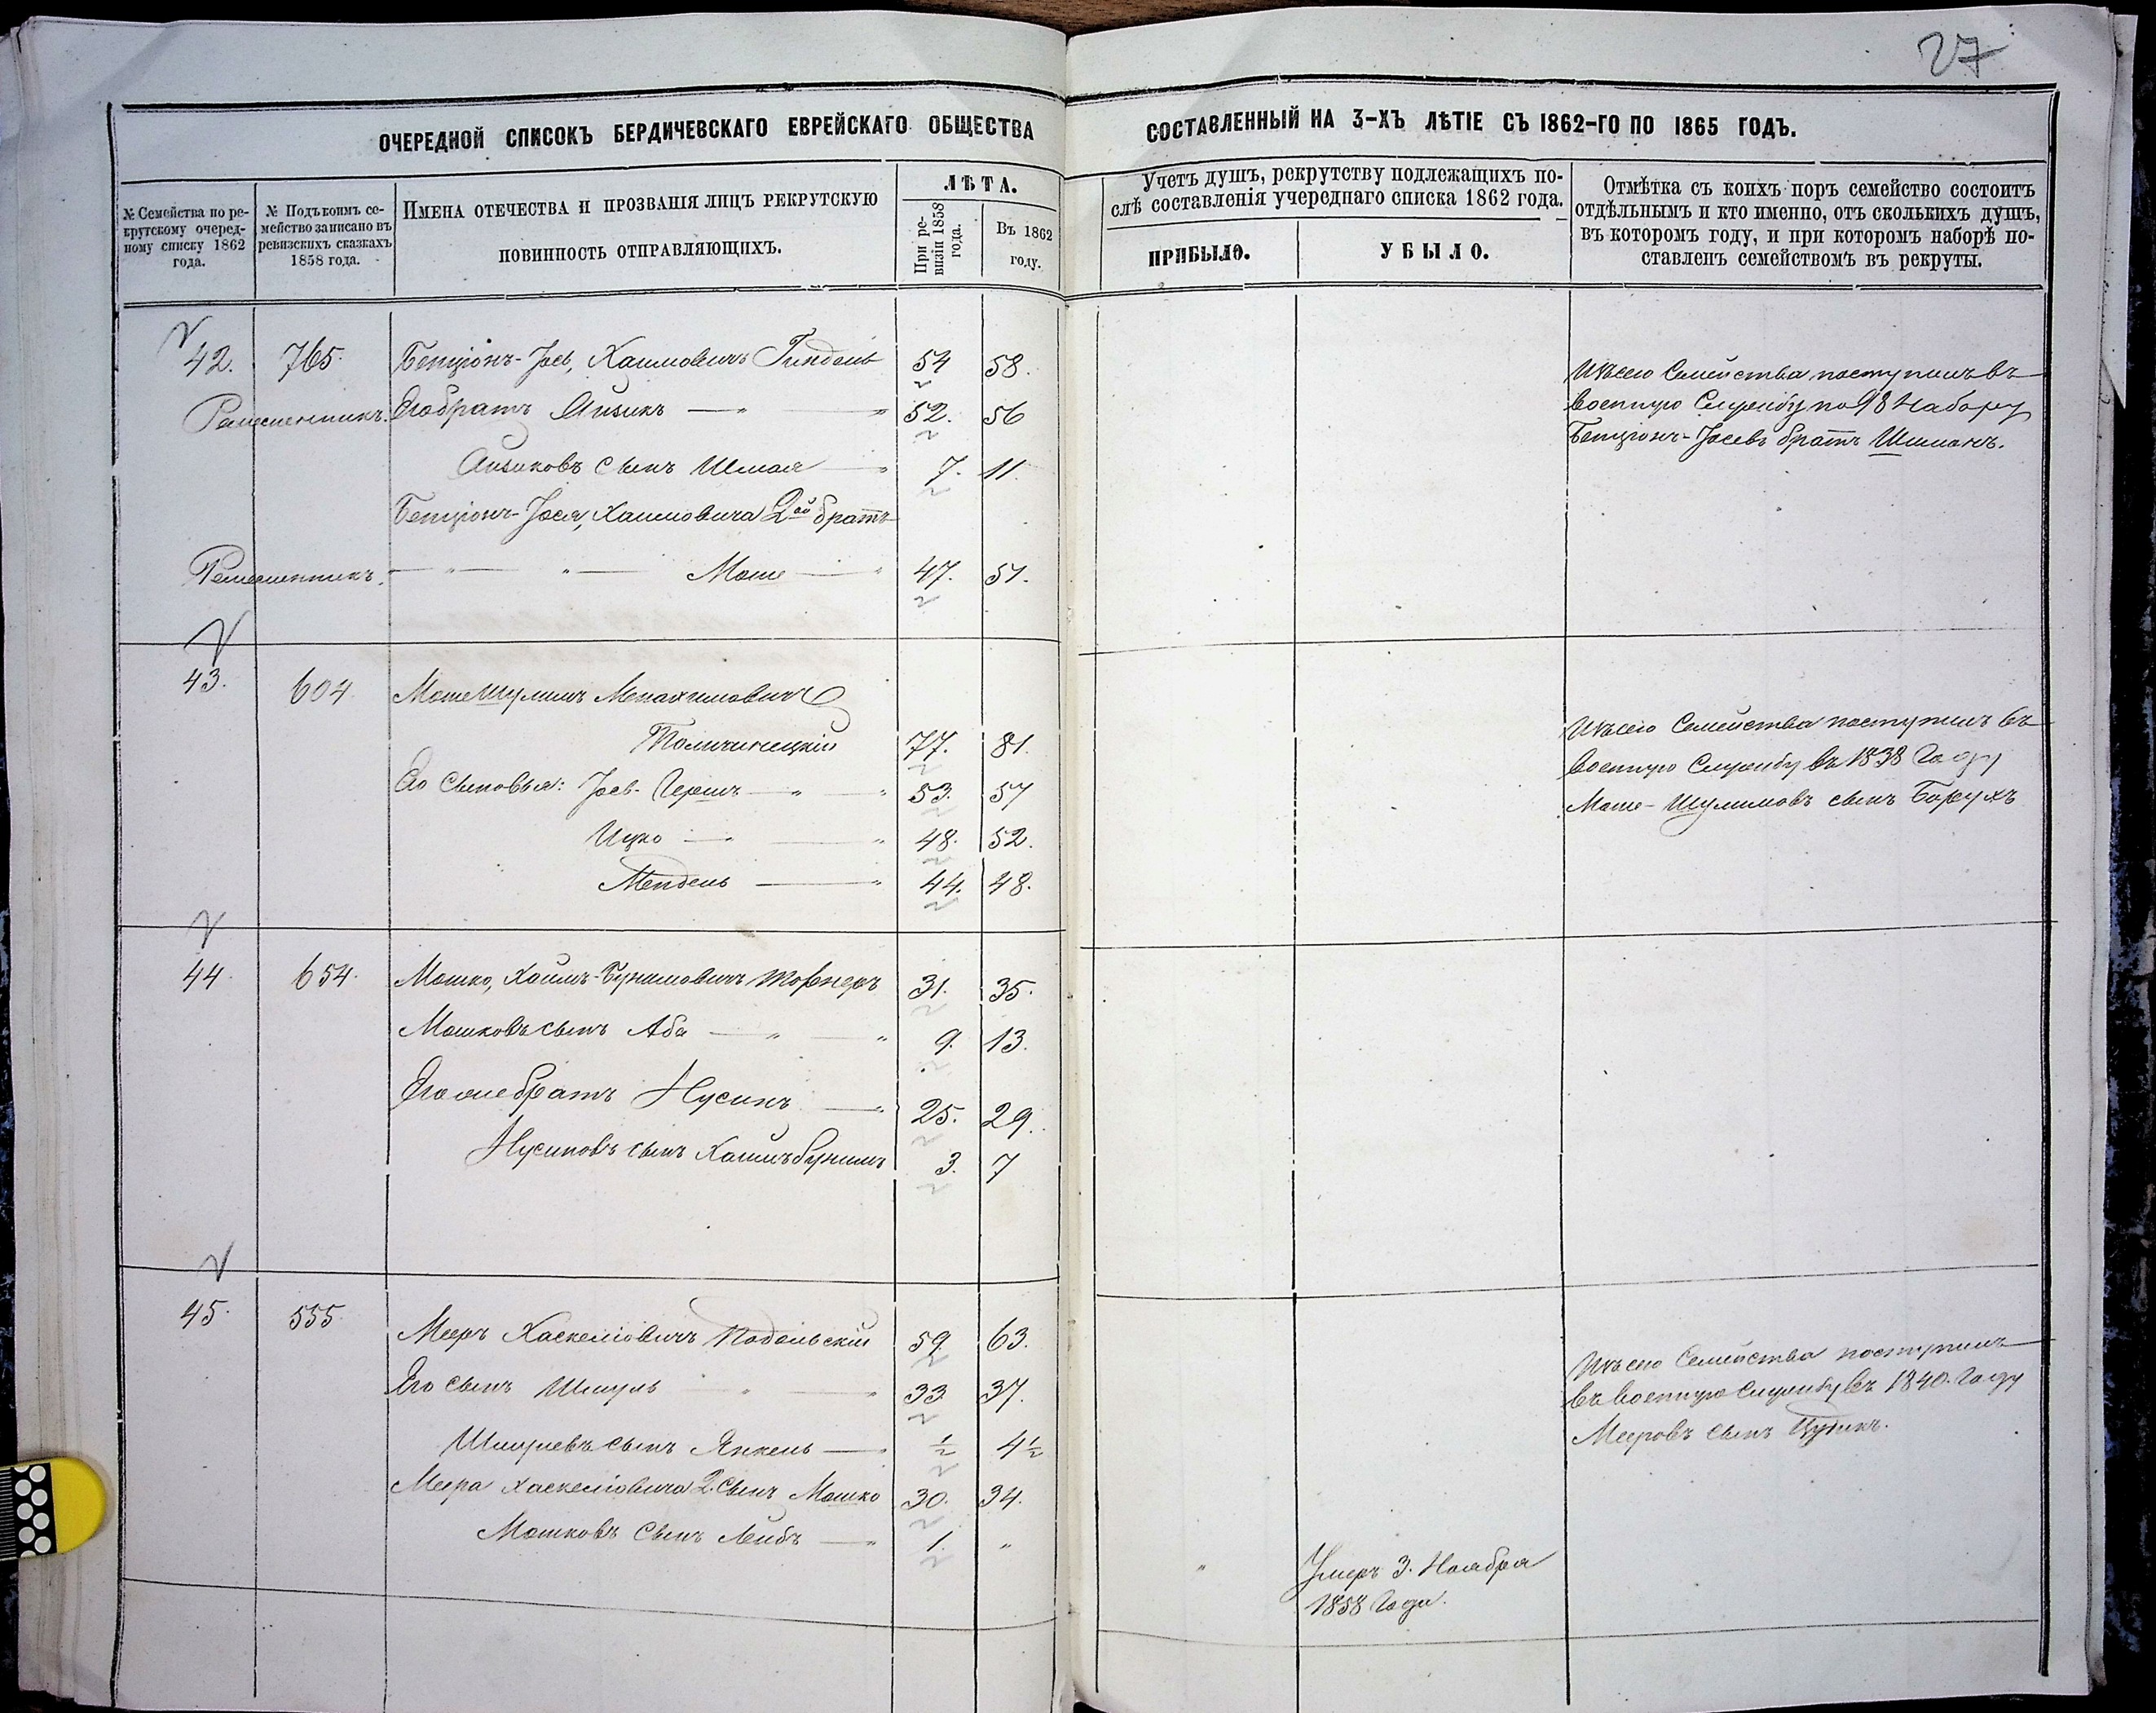 27
ОЧЕРЕДНОЙ СПИСОКЪ БЕРДИЧЕВСКАГО ЕВРЕЙСКАГО ОБЩЕСТВА
СОСТАВЛЕННЫЙ НА 3-ХЪ ЛѢТІЕ СЪ 1862-ГО ПО 1865 ГОДЪ.
№ Семейства по ре-
крутскому очеред-
ному списку 1862
года.
№ Подъ коимъ се-
мейство записано въ
ревизскихъ сказкахъ
1858 года.
ИМЕНА ОТЕЧЕСТВА И ПРОЗВАНІЯ ЛИЦЪ РЕКРУТСКУЮ
ПОВИННОСТЬ ОТПРАВЛЯЮЩИХЪ.
ЛѢТА.
При ре-
визіи 1858
года.
Въ 1862
году.
Учетъ душъ, рекрутству подлежащихъ по-
слѣ составленія учереднаго списка 1862 года.
ПРИБЫЛО.
УБЫЛО.
Отмѣтка съ коихъ поръ семейство состоитъ
отдѣльнымъ и кто именно, отъ сколькихъ душъ,
въ которомъ году, и при которомъ наборѣ по-
ставленъ семействомъ въ рекруты.
42. 765. Бенціонъ-Іосъ, Хаимовичъ Гиндель 54 58.
Ремесленникъ. Его братъ Айзикъ — " — " 52. 56
Айзиковъ сынъ Шмая — " 7. 11.
Бенціонъ-Іося, Хаимовича 2ой братъ
Ремесленникъ. — " — " — Моше — " 47. 51.
Изъ сего Семейства поступилъ въ
военную Службу по 98 Набору
Бенціонъ-Іосевъ братъ Шиманъ.
43. 604 Моше Шулимъ Менахимовичъ
77. 81.
Его Сыновья: Іосъ-Гершъ — " — " 53. 57
Ицко — " — " 48. 52.
Мендель — " 44. 48.
Изъ сего Семейства поступилъ въ
военную Службу въ 1838 Году
Моше-Шулимовъ сынъ Борухъ
44. 654. Мошко, Хаимъ-Бунимовичъ 31. 35.
Мошковъ сынъ Аба — " — " 9. 13.
Его же братъ Нусинъ — " 25. 29.
Нусиновъ сынъ Хаимъ бунимъ 3. 7
45. 555. Мееръ Хаскелiовичъ Подольскій 59. 63.
Его сынъ Шмуль — " — " 33. 37.
Шмулевъ сынъ Янкель — " ½ 4½
Меера Хаскелiовича 2. сынъ Мошко 30. 34.
Мошковъ Сынъ Лейбъ — " 1. "
" Умеръ 3. Ноября
1858 Года.
Изъ сего Семейства поступилъ
въ военную Службу въ 1840. Году
Мееровъ сынъ